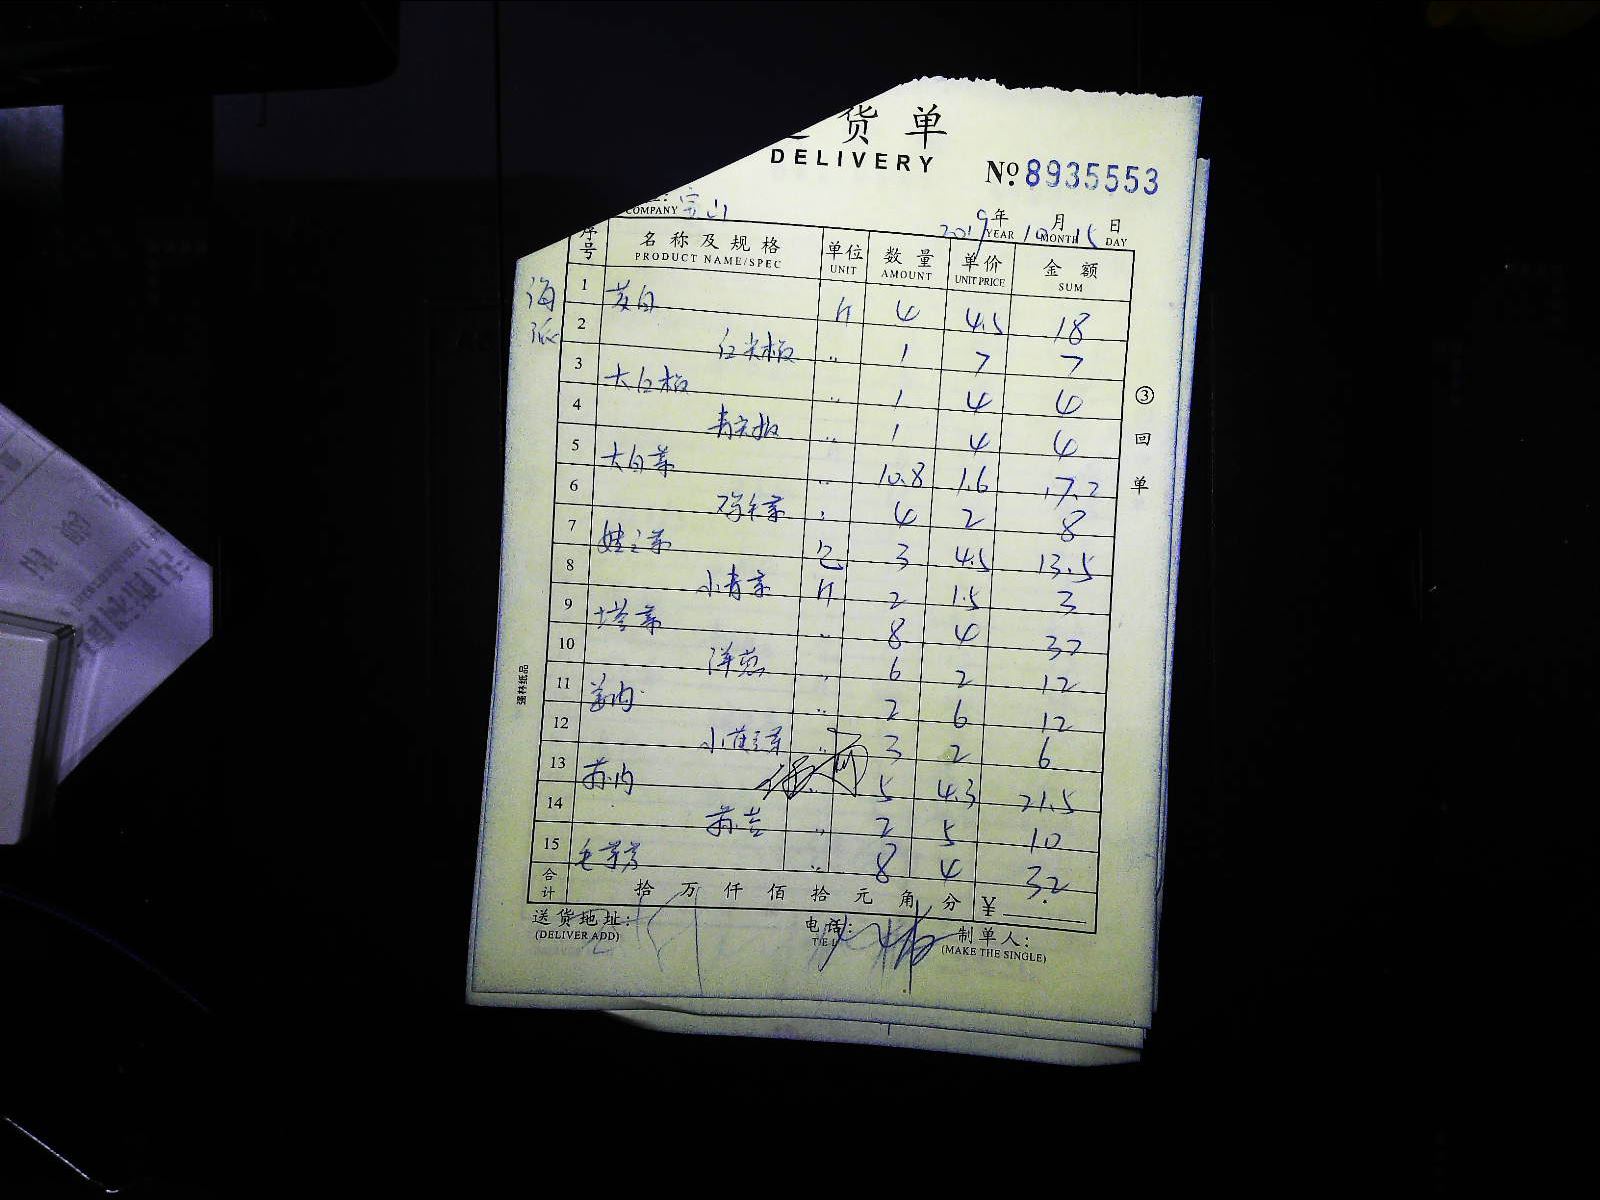 货单
DELIVERY
No. 8935553
COMPANY 宝山
2019年YEAR 10月MONTH 15日DAY
序号 名称及规格 PRODUCT NAME/SPEC 单位 UNIT 数量 AMOUNT 单价 UNIT PRICE 金额 SUM
海
派
1 茭白 斤 4 4.5 18
2 红尖椒 〃 1 7 7
3 大红椒 〃 1 4 4
4 青尖椒 〃 1 4 4
5 大白菜 〃 10.8 1.6 17.2
6 4 2 8
7 娃娃菜 包 3 4.5 13.5
8 小青菜 斤 2 1.5 3
9 塔菜 〃 8 4 32
10 洋葱 〃 6 2 12
11 〃 2 6 12
12 〃 3 2 6
13 〃 5 4.3 21.5
14 〃 2 5 10
15 毛芋艿 〃 8 4 32
合计 拾 万 仟 佰 拾 元 角 分 ¥
送货地址:
(DELIVER ADD)
电话:
TEL
制单人:
(MAKE THE SINGLE)
③回单
强林纸品